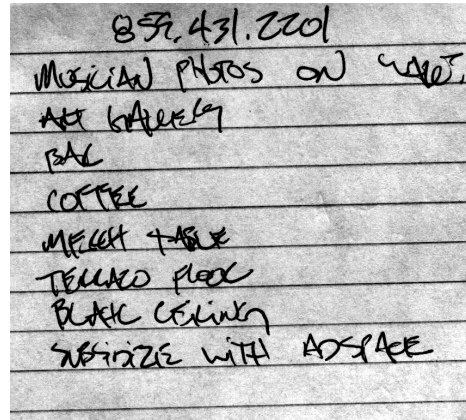 859.431.2201
MUSICIAN PHOTOS ON WALLS.
ART GALLERY
BAR
COFFEE
MERCH TABLE
TERRAZO FLOOR
BLACK CEILING
SUBSIDIZE WITH ADSPACE